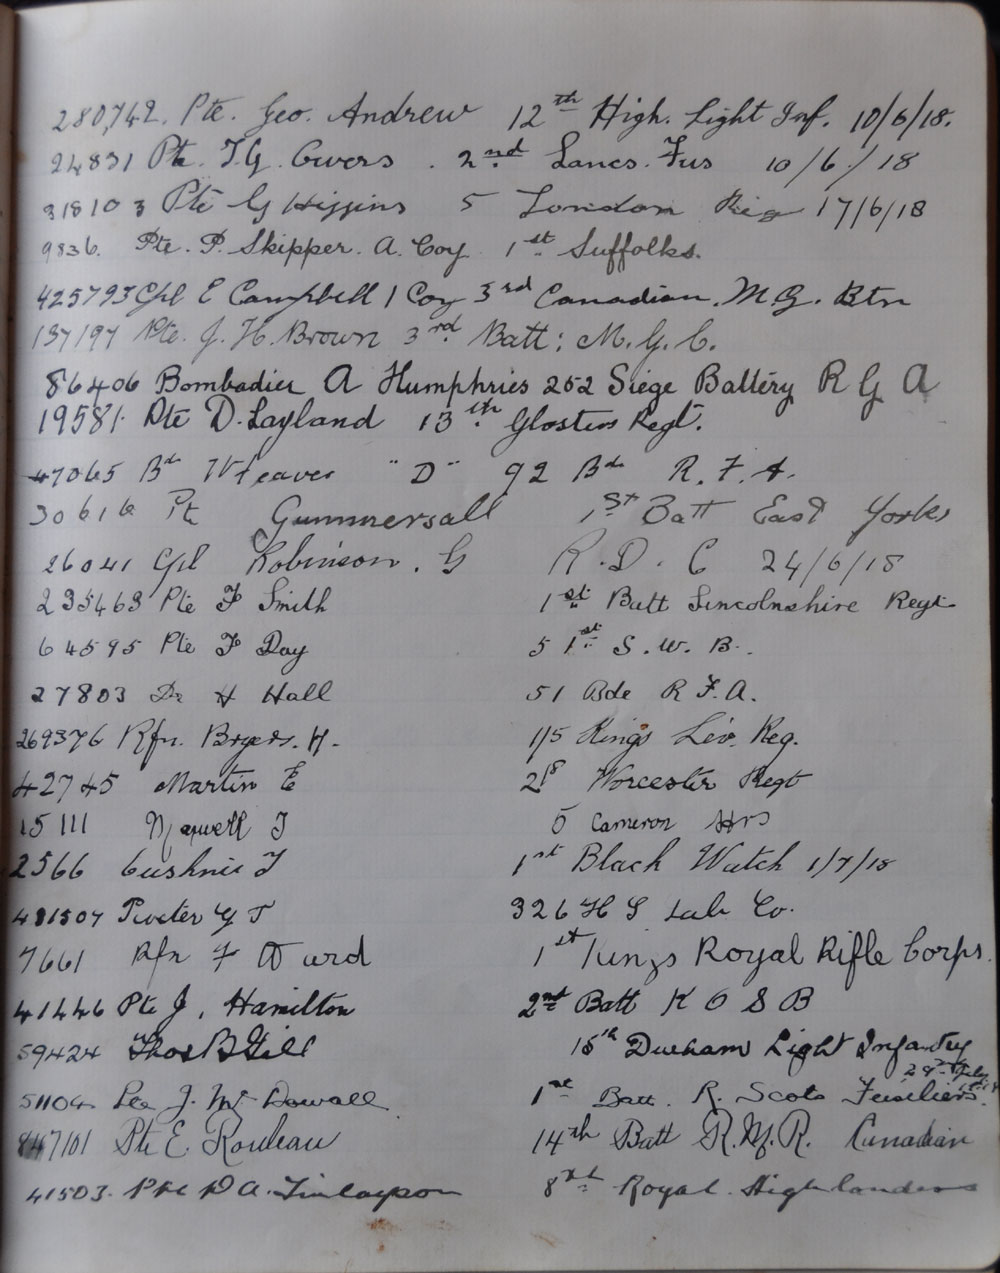 280,742. Pte. Geo. Andrew 12th High. Light Inf. 10/6/18.
24831 Pte. T.G. Owers. 2nd Lancs. Fus 10/6/18
318103 Pte G Higgins 5 London Rig 17/6/18
9836. Pte. P. Skipper. A. Coy. 1st Suffolks.
425793 Cpl E Campbell 1 Coy 3rd Canadian. M.G. Btn
137197 Pte. J. H. Brown 3rd Batt: M.G.C.
86406 Bombadier A Humphries 252 Siege Battery R G A
19581. Pte D. Layland 13th Glosters Regt.
47065 Bdr Weaver "D" 92 Bde R.F.A.
30616 Pte Gummersall 1st Batt East Yorks
26041 Cpl Robinson. G R.D.C 24/6/18
235463 Pte F Smith 1st Batt Lincolnshire Regt
64595 Pte F Day 51st S.W.B..
27803 Dr H Hall 51 Bde R.F.A.
269376 Rfn. Bryers. H. 1/5 Kings Liv. Reg.
42745 Martin E Worcester Regt
15111 Maxwell J 5 Cameron Hrs
2566 Cushnie J 1st Black Watch 1/7/18
481507 G T 326 H S Lab Co.
7661 Rfn F Ward 1st Kings Royal Rifle Corps.
41446 Pte J. Hamilton 2nd Batt K O S B
59424 Thos B Gill 15th Durham Light Infantry
29th July 1918
51104 J. Mc Dowall 1st Batt. R. Scots Fusiliers.
847101 Pte E. Rouleau 14th Batt R.M.R. Canadian
41503. Pte D A. Finlayson 8th Royal. Highlanders